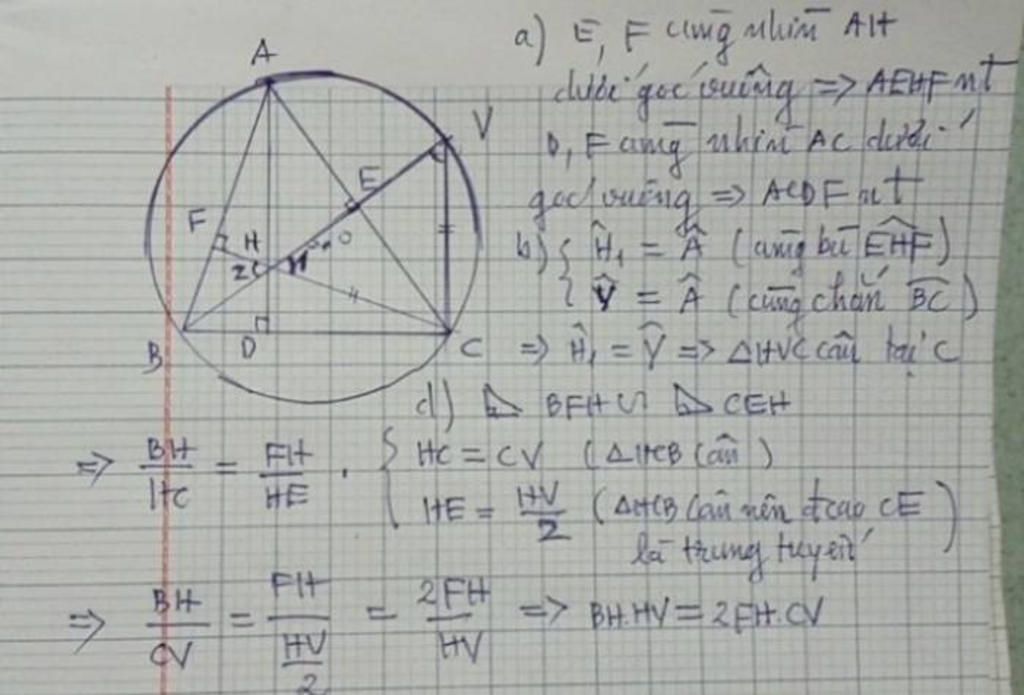 a) E, F cùng nhìn AH
dưới góc vuông => AEHF nt
D, F cùng nhìn AC dưới
góc vuông => ACDF nt
b) { Ĥ₁ = Â (cùng bù EHF)
V̂ = Â (cùng chắn BC)
=> Ĥ₁ = V̂ => △HVC cân tại C
d) ◺ BFH ∽ ◺ CEH
=> BH/HC = FH/HE . { HC = CV (△HCB cân)
HE = HV/2 (△HCB cân nên đcao CE
là trung tuyến)
=> BH/CV = FH/(HV/2) = 2FH/HV => BH.HV = 2FH.CV
A
V
E
F
H
O
B
D
C